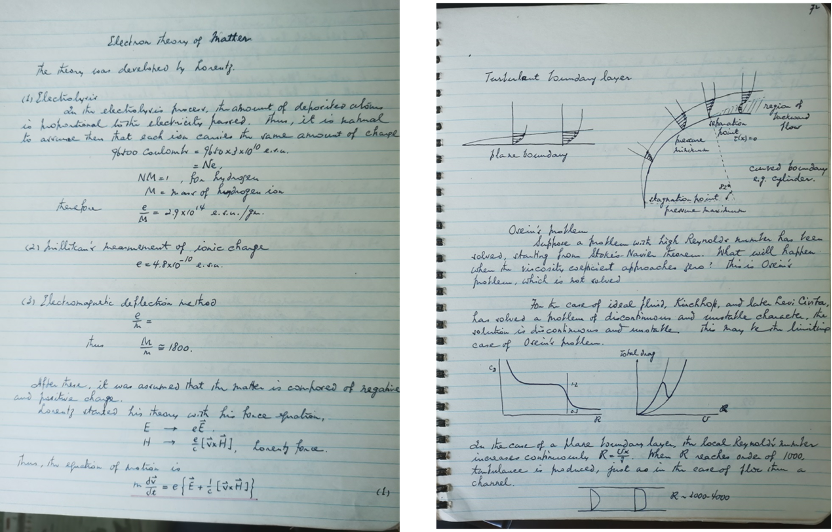 Electron theory of Matter
The theory was developed by Lorentz.
(1) Electrolysis
In the electrolysis process, the amount of deposited atoms
is proportional to the electricity passed. Thus, it is natural
to assume then that each ion carries the same amount of charge
96500 Coulombs = 9650 x 3 x 10^10 e.s.u.
= Ne,
NM = 1, for hydrogen
M = mass of hydrogen ion
therefore e/M = 2.9 x 10^14 e.s.u./gr.
(2) Millikan's measurement of ionic charge
e = 4.8 x 10^-10 e.s.u.
(3) Electromagnetic deflection method
e/m =
thus M/m ≅ 1800.
After these, it was assumed that the matter is composed of negative
and positive charge.
Lorentz started his theory with his force equation,
E → eE⃗
H → e/c [v⃗ x H⃗], Lorentz force.
Thus, the equation of motion is
m dv⃗/dt = e {E⃗ + 1/c [v⃗ x H⃗]}
(1)
72
Turbulent boundary layer
region of
backward
flow
separation
point
pressure
minimum
plane boundary
curved boundary
e.g. cylinder.
stagnation point
pressure maximum
Osein's problem
Suppose a problem with high Reynold's number has been
solved, starting from Stokes Navier theorem. What will happen
when the viscosity coefficient approaches zero? This is Osein's
problem, which is not solved
For the case of ideal fluid, Kirchhoff, and late Levi Civita,
has solved a problem of discontinuous and unstable character. The
solution is discontinuous and unstable. This may be the limiting
case of Osein's problem.
Total drag
R
U
In the case of a plane boundary layer, the local Reynold's number
increases continuously R = Ux/ν. When R reaches order of 1000,
turbulence is produced, just as in the case of flow thru a
channel.
R ~ 1000-4000